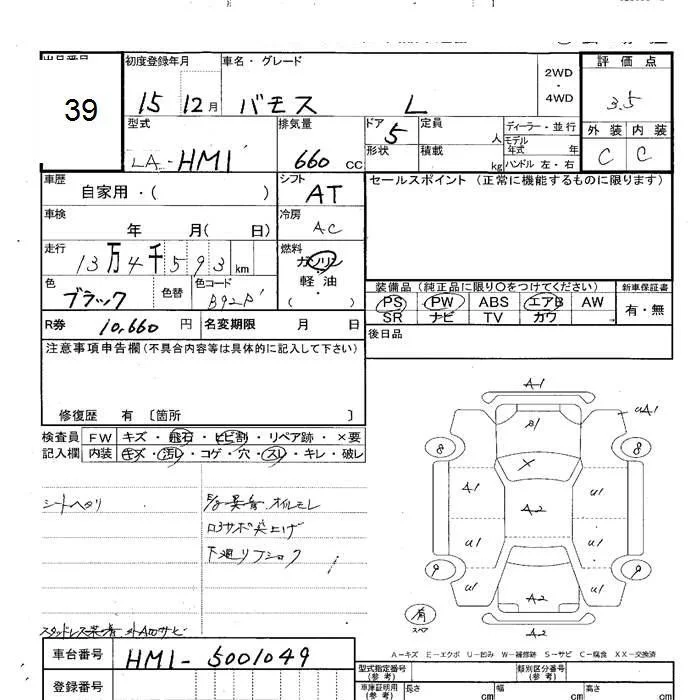 39
初度登録年月
15 12月
車名・グレード
バモス L
2WD
・
4WD
評価点
3.5
外装 内装
C C
型式
LA-HM1
排気量
660 CC
ドア 5
形状
定員 人
積載 kg
ディーラー・並行
モデル年式 年
ハンドル 左・右
車歴
自家用・( )
シフト
AT
セールスポイント (正常に機能するものに限ります)
車検
年 月( 日)
冷房
AC
走行
13万4千593 km
燃料
ガソリン
軽・油
( )
色
ブラック
色替
色コード
B92P
装備品 (純正品に限り○をつけてください)
新車保証書
PS PW ABS エアB AW
SR ナビ TV カワ
有・無
R券 10,660 円
名変期限 月 日
後日品
注意事項申告欄 (不具合内容等は具体的に記入して下さい)
修復歴 有 〔箇所 〕
検査員 FW キズ・飛石・ヒビ割・リペア跡・×要
記入欄 内装 キズ・汚レ・コゲ・穴・スレ・キレ・破レ
シートヘタリ
オイルモレ
下廻リ
A-1
A1
uA1
8
8
X
A1
u1
A-2
u1
u1
9
9
u1
u1
A-2
有
スペア
A-2
A-キズ E-エクボ U-凹み W-補修跡 S-サビ C-腐食 XX-交換済
車台番号
HM1-5001049
登録番号
型式指定番号
(参考)
類別区分番号
(参考)
車庫証明用
(参考)
長さ cm
幅 cm
高さ cm